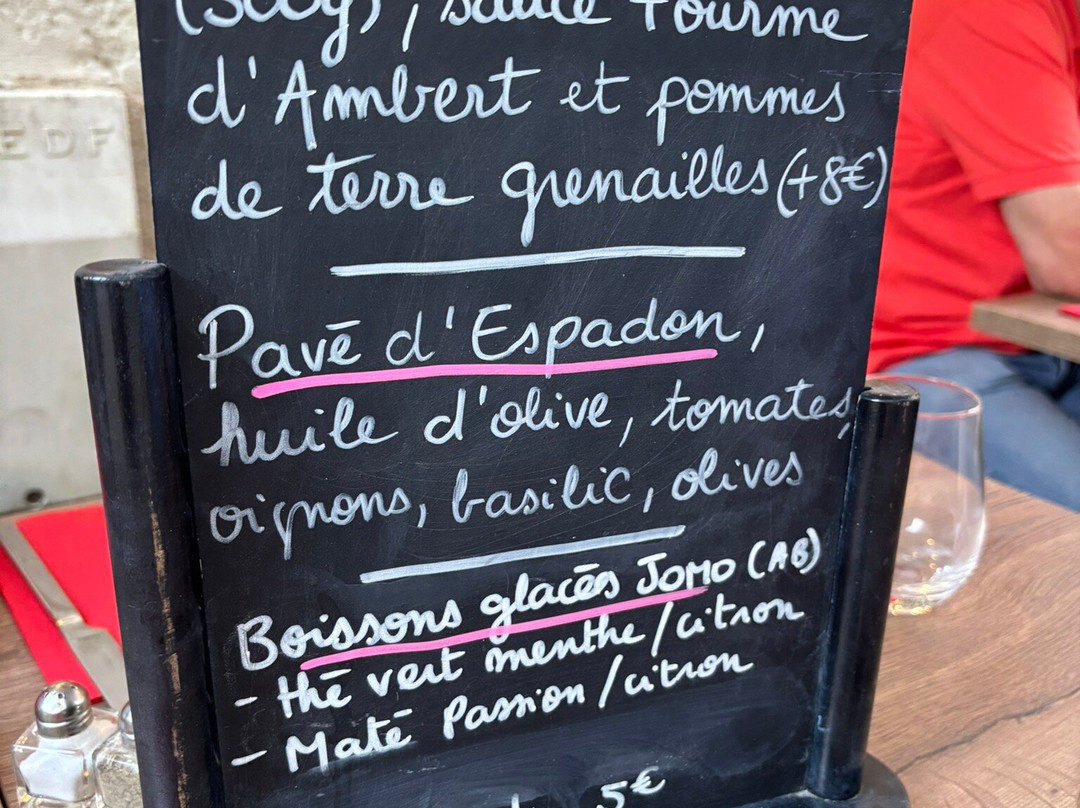 (350g), sauce Fourme
d'Ambert et pommes
de terre grenailles (+8€)
Pavé d'Espadon,
huile d'olive, tomates,
oignons, basilic, olives
Boissons glacés JOMO (AB)
- thé vert menthe/citron
- Maté Passion/citron
5€
EDF